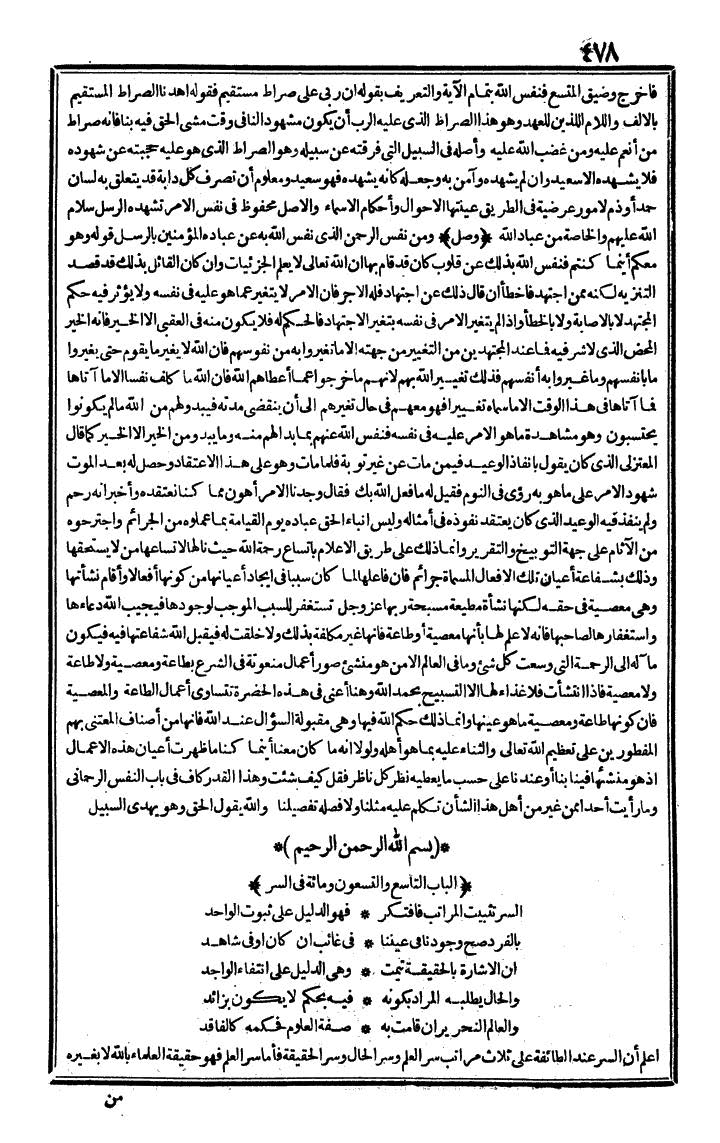 ٤٧٨
فاخرج وضيق المتسع فنفس الله بتمام الآية والتعريف بقوله ان ربى على صراط مستقيم فقوله اهدنا الصراط المستقيم
بالالف واللام اللذين للعهد وهو هذا الصراط الذى عليه الرب أن يكون مشهودا لنا فى وقت مشى الحق فيه بنا فانه صراط
من أنعم عليه ومن غضب الله عليه وأصله فى السبيل التى فرقته عن سبيله وهو الصراط الذى هو عليه حجبته عن شهوده
فلا يشهده الا سعيد وان لم يشهده وآمن به وجعله كانه يشهده فهو سعيد ومعلوم أن تصرف كل دابة قد يتعلق به لسان
حمد أو ذم لامور عرضية فى الطريق عينتها الاحوال وأحكام الاسماء والاصل محفوظ فى نفس الامر تشهده الرسل سلام
الله عليهم والخاصة من عباد الله ﴿وصل﴾ ومن نفس الرحمن الذى نفس الله به عن عباده المؤمنين بالرسل قوله وهو
معكم أينما كنتم فنفس الله بذلك عن قلوب كان قد قام بها ان الله تعالى لا يعلم الجزئيات وان كان القائل بذلك قد قصد
التنزيه لكنه ممن اجتهد فاخطأ ان قال ذلك عن اجتهاد فله الاجر فان الامر لا يتغير عما هو عليه فى نفسه ولا يؤثر فيه حكم
المجتهد لا بالاصابة ولا بالخطأ واذا لم يتغير الامر فى نفسه بتغير الاجتهاد فالحكم له فلا يكون منه فى العقبى الا الخير فانه الخير
المحض الذى لا شر فيه فما عند المجتهدين من التغيير من جهته الا ما تغيروا به من نفوسهم فان الله لا يغير ما بقوم حتى يغيروا
ما بانفسهم وما غيروا به أنفسهم فذلك تغيير الله بهم لانهم ما خرجوا عما أعطاهم الله فان الله ما كلف نفسا الا ما آتاها
فما آتاها فى هذا الوقت الا ما سماه تغييرا فهو معهم فى حال تغيرهم الى أن ينقضى مدته فيبدو لهم من الله ما لم يكونوا
يحتسبون وهو مشاهدة ما هو الامر عليه فى نفسه فنفس الله عنهم بما بدا لهم منه وما يبدو من الخير الا الخير كما قال
المعتزلى الذى كان يقول بانفاذ الوعيد فيمن مات عن غير توبة فلما مات وهو على هذا الاعتقاد وحصل له بعد الموت
شهود الامر على ما هو به رؤى فى النوم فقيل له ما فعل الله بك فقال وجدنا الامر أهون مما كنا نعتقده وأخبر انه رحم
ولم ينفذ فيه الوعيد الذى كان يعتقد نفوذه فى أمثاله وليس انباء الحق عباده يوم القيامة بما عملوه من الجرائم واجترحوه
من الآثام على جهة التوبيخ والتقرير وانما ذلك على طريق الاعلام باتساع رحمة الله حيث نالها لاتساعها من لا يستحقها
وذلك بشفاعة أعيان تلك الافعال المسماة جرائم فان فاعلها لما كان سببا فى ايجاد أعيانها من كونها أفعالا وأقام نشأتها
وهى معصية فى حقه لكنها نشأة مطيعة مسبحة ربها عز وجل تستغفر للسبب الموجب لوجودها فيجيب الله دعاءها
واستغفارها لصاحبها فانه لا علم لها بأنها معصية أو طاعة فانها غير مكلفة بذلك ولا خلقت له فيقبل الله شفاعتها فيه فيكون
ما آله الى الرحمة التى وسعت كل شئ وما فى العالم الا من هو منشئ صور أعمال منعوتة فى الشرع بطاعة ومعصية ولا طاعة
ولا معصية فاذا انتشأت فلا غذاء لها الا التسبيح بحمد الله وهنا أعنى فى هذه الحضرة تتساوى أعمال الطاعة والمعصية
فان كونها طاعة ومعصية ما هو عينها وانما ذلك حكم الله فيها وهى مقبولة السؤال عند الله فانها من أصناف المعتنى بهم
المفطورين على تعظيم الله تعالى والثناء عليه بما هو أهله ولولا انه ما كان معنا أينما كنا ما ظهرت أعيان هذه الاعمال
اذ هو منشئها فينا بنا أو عندنا على حسب ما يعطيه نظر كل ناظر فقل كيف شئت وهذا القدر كاف فى باب النفس الرحمانى
وما رأيت أحدا ممن غبر من أهل هذا الشأن تكلم عليه مثلنا ولا فصله تفصيلنا والله يقول الحق وهو يهدى السبيل
*(بسم الله الرحمن الرحيم)*
﴿الباب التاسع والتسعون ومائة فى السر﴾
السر تثبيت المراتب فافتكر * فهو الدليل على ثبوت الواحد
بالفرد صح وجودنا فى عيننا * فى غائب ان كان او فى شاهد
ان الاشارة بالحقيقة تمت * وهى الدليل على انتفاء الواجد
والحال يطلبه المراد بكونه * فيه بحكم لا يكون بزائد
والعالم النحرير ان قامت به * صفة العلوم فحكمه كالفاقد
اعلم أن السر عند الطائفة على ثلاث مراتب سر العلم وسر الحال وسر الحقيقة فأما سر العلم فهو حقيقة العلماء بالله لا بغيره
من